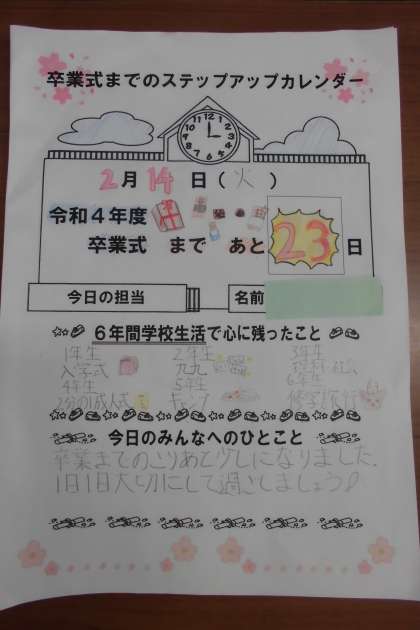 卒業式までのステップアップカレンダー
12 1 2 3 4 5 6 7 8 9 10 11
2月14日(火)
令和4年度
卒業式 まで あと23日
今日の担当 名前
6年間学校生活で心に残ったこと
1年生 2年生 3年生
入学式 九九 理科・社会
4年生 5年生 6年生
2分の1成人式 キャンプ 修学旅行
今日のみんなへのひとこと
卒業までのこりあと少しになりました.
1日1日大切にして過ごしましょう!